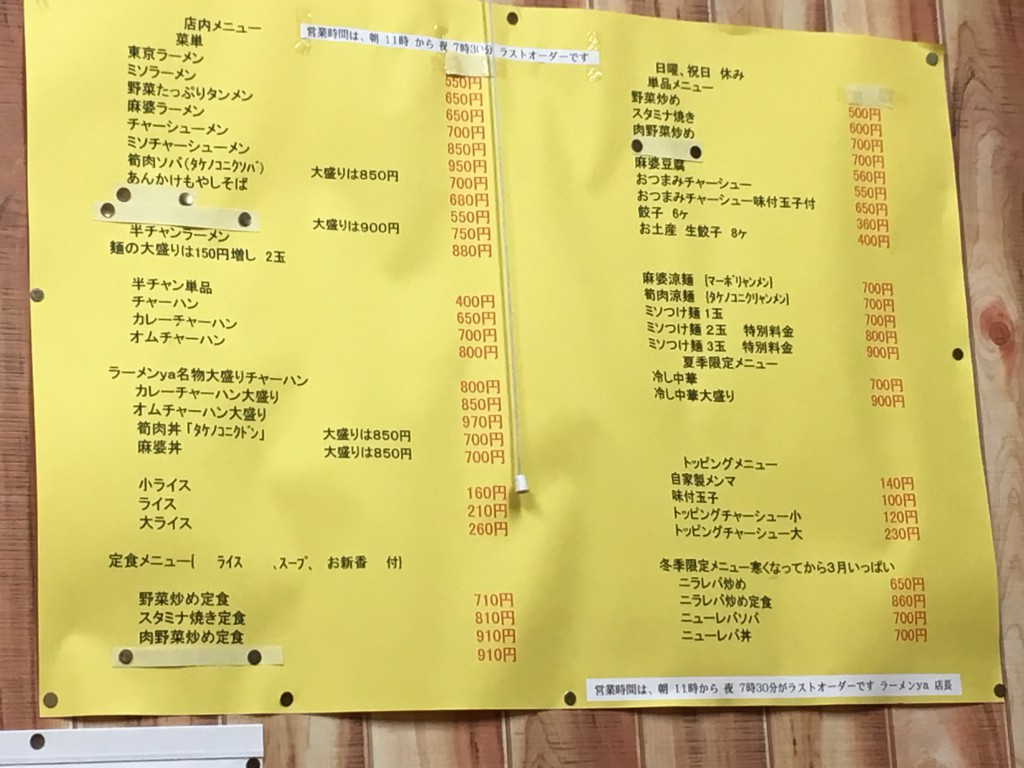 店内メニュー
営業時間は、朝 11時 から 夜 7時30分 ラストオーダーです
菜単
東京ラーメン 550円
ミソラーメン 650円
野菜たっぷりタンメン 650円
麻婆ラーメン 700円
チャーシューメン 850円
ミソチャーシューメン 950円
筍肉ソバ(タケノコニクソバ) 大盛りは850円 700円
あんかけもやしそば 680円
550円
半チャンラーメン 大盛りは900円 750円
麺の大盛りは150円増し 2玉 880円
半チャン単品 400円
チャーハン 650円
カレーチャーハン 700円
オムチャーハン 800円
ラーメンya名物大盛りチャーハン 800円
カレーチャーハン大盛り 850円
オムチャーハン大盛り 970円
筍肉丼「タケノコニクドン」 大盛りは850円 700円
麻婆丼 大盛りは850円 700円
小ライス 160円
ライス 210円
大ライス 260円
定食メニュー( ライス 、スープ、 お新香 付)
野菜炒め定食 710円
スタミナ焼き定食 810円
肉野菜炒め定食 910円
910円
日曜、祝日 休み
単品メニュー
野菜炒め 500円
スタミナ焼き 600円
肉野菜炒め 700円
700円
麻婆豆腐 560円
おつまみチャーシュー 550円
おつまみチャーシュー味付玉子付 650円
餃子 6ヶ 360円
お土産 生餃子 8ヶ 400円
麻婆涼麺 (マーボリャンメン) 700円
筍肉涼麺 (タケノコニクリャンメン) 700円
ミソつけ麺 1玉 700円
ミソつけ麺 2玉 特別料金 800円
ミソつけ麺 3玉 特別料金 900円
夏季限定メニュー
冷し中華 700円
冷し中華大盛り 900円
トッピングメニュー
自家製メンマ 140円
味付玉子 100円
トッピングチャーシュー小 120円
トッピングチャーシュー大 230円
冬季限定メニュー寒くなってから3月いっぱい
ニラレバ炒め 650円
ニラレバ炒め定食 860円
ニューレバソバ 700円
ニューレバ丼 700円
営業時間は、朝 11時から 夜 7時30分がラストオーダーです ラーメンya 店長